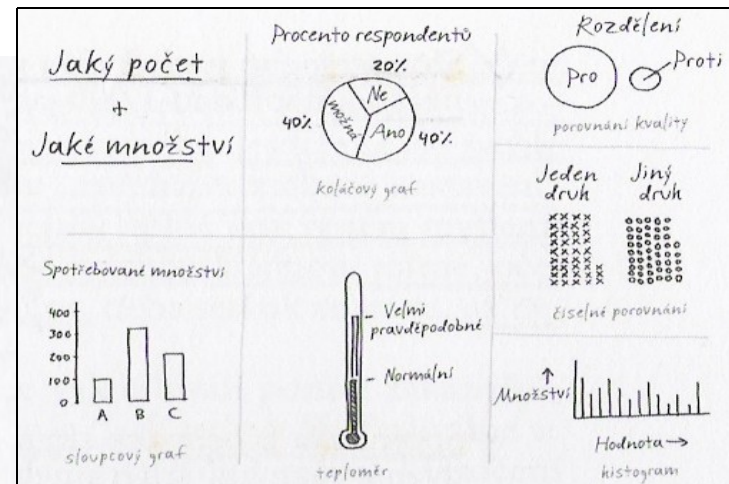 Jaký počet
+
Jaké množství
Procento respondentů
20%
Ne
možná
Ano
40%
40%
koláčový graf
Rozdělení
Pro
Proti
porovnání kvality
Jeden
druh
Jiný
druh
číselné porovnání
Spotřebované množství
400
300
200
100
0
A B C
sloupcový graf
Velmi
pravděpodobné
Normální
teploměr
Množství
Hodnota
histogram